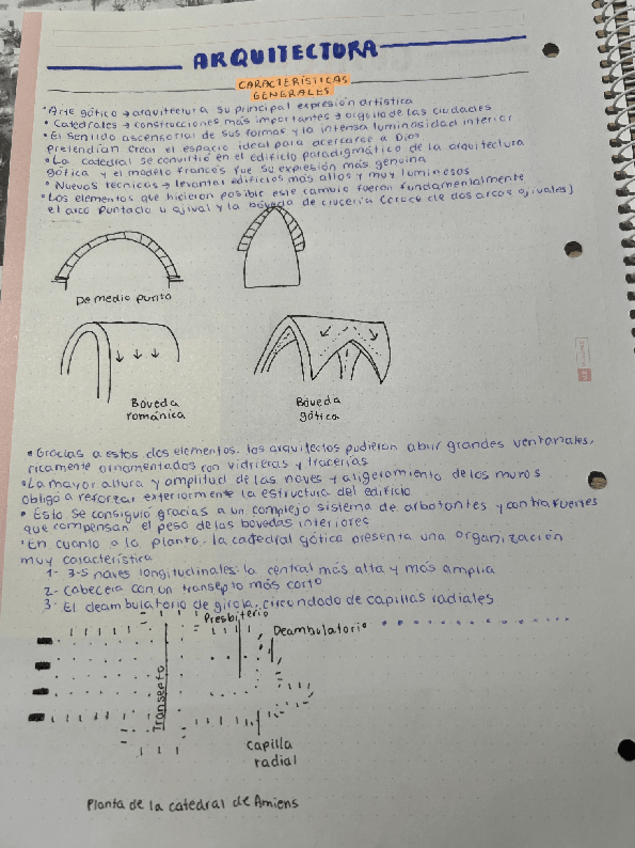 ARQUITECTURA
CARACTERÍSTICAS
GENERALES
• Arte gótico → arquitectura su principal expresión artística
• Catedrales → construcciones más importantes → orgullo de las ciudades
• El sentido ascensorial de sus formas y la intensa luminosidad interior
pretendían crear el espacio ideal para acercarse a Dios
• La catedral se convirtió en el edificio paradigmático de la arquitectura
gótica y el modelo francés fue su expresión más genuina
• Nuevas técnicas → levantar edificios más altos y muy luminosos
• Los elementos que hicieron posible este cambio fueron fundamentalmente
el arco puntado u ojival y la bóveda de crucería (cruce de dos arcos ojivales)
De medio punto
Bóveda
románica
Bóveda
gótica
• Gracias a estos dos elementos. los arquitectos pudieron abrir grandes ventanales,
ricamente ornamentados con vidrieras y tracerías
• La mayor altura y amplitud de las naves y aligeramiento de los muros
obligó a reforzar exteriormente la estructura del edificio
• Esto se consiguió gracias a un complejo sistema de arbotantes y contrafuertes
que compensan el peso de las bóvedas interiores
• En cuanto a la planta. la catedral gótica presenta una organización
muy característica
1- 3-5 naves longitudinales: la central más alta y más amplia
2- cabecera con un transepto más corto
3- El deambulatorio de girola, circundado de capillas radiales
Presbiterio
Deambulatorio
Transepto
capilla
radial
Planta de la catedral de Amiens